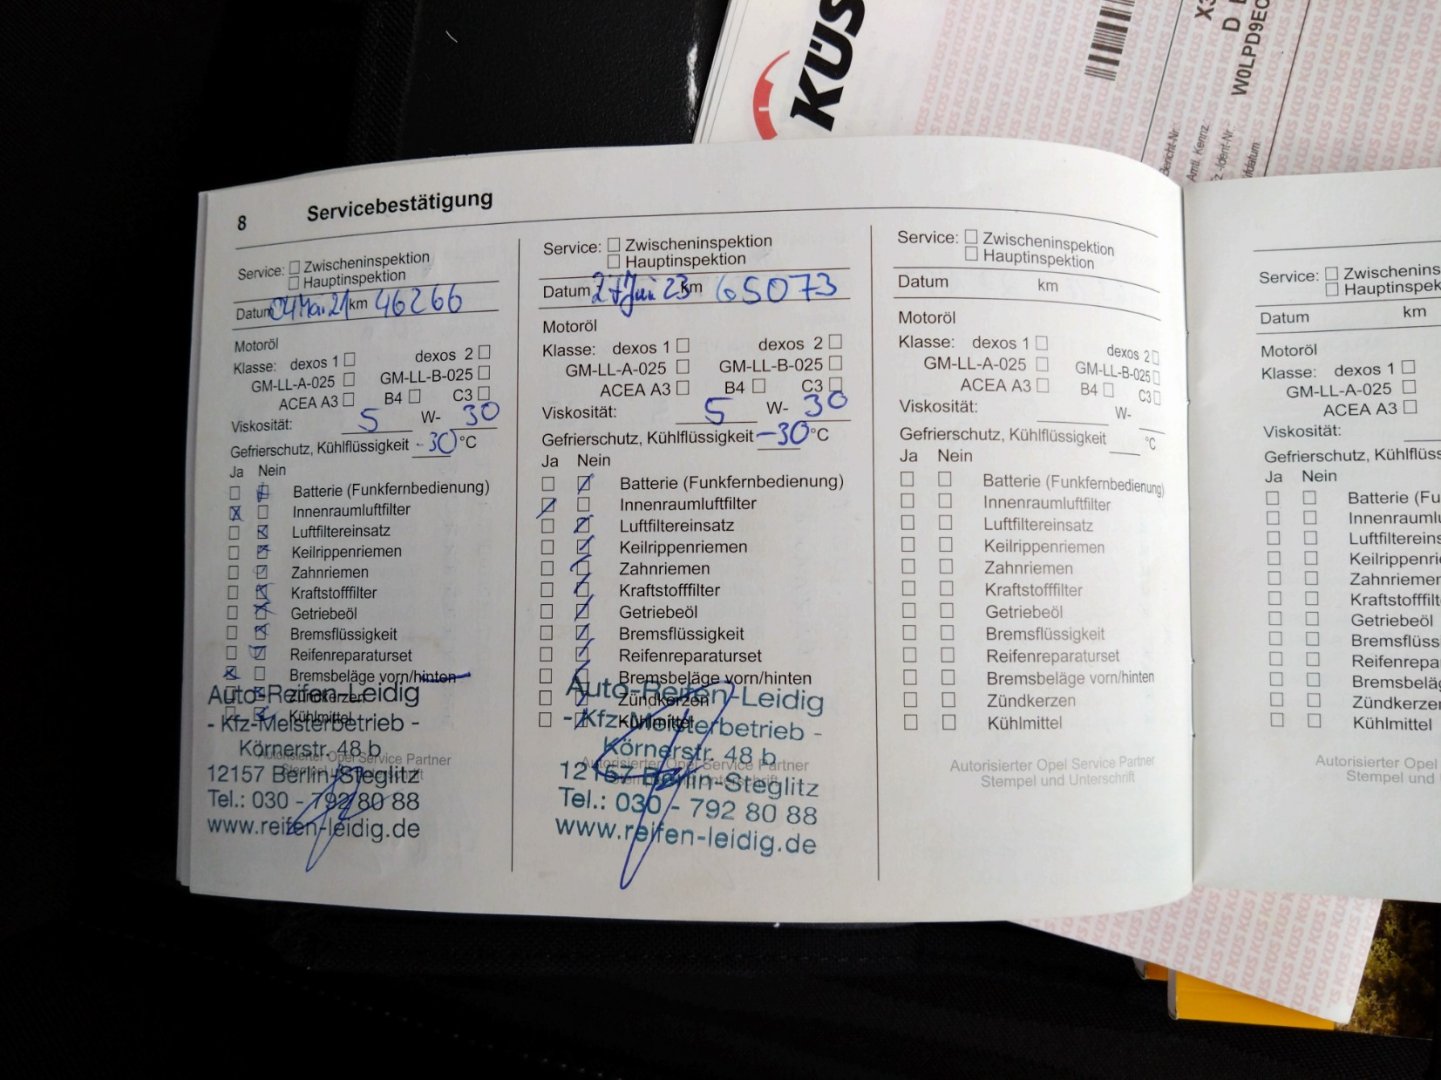 KÜS
X3
D B
W0LPD9EC
Amtl. Kennz
8 Servicebestätigung
Service: Zwischeninspektion
Hauptinspektion
Datum 04 Mai 21 km 46266
Motoröl
Klasse: dexos 1 dexos 2
GM-LL-A-025 GM-LL-B-025
ACEA A3 B4 C3
Viskosität: 5 W- 30
Gefrierschutz, Kühlflüssigkeit -30 °C
Ja Nein
Batterie (Funkfernbedienung)
Innenraumluftfilter
Luftfiltereinsatz
Keilrippenriemen
Zahnriemen
Kraftstofffilter
Getriebeöl
Bremsflüssigkeit
Reifenreparaturset
Bremsbeläge vorn/hinten
Zündkerzen
Kühlmittel
Autorisierter Opel Service Partner
Auto-Reifen-Leidig
- Kfz-Meisterbetrieb -
Körnerstr. 48 b
12157 Berlin-Steglitz
Tel.: 030 - 792 80 88
www.reifen-leidig.de
Service: Zwischeninspektion
Hauptinspektion
Datum 27 Jun 23 km 65073
Motoröl
Klasse: dexos 1 dexos 2
GM-LL-A-025 GM-LL-B-025
ACEA A3 B4 C3
Viskosität: 5 W- 30
Gefrierschutz, Kühlflüssigkeit -30 °C
Ja Nein
Batterie (Funkfernbedienung)
Innenraumluftfilter
Luftfiltereinsatz
Keilrippenriemen
Zahnriemen
Kraftstofffilter
Getriebeöl
Bremsflüssigkeit
Reifenreparaturset
Bremsbeläge vorn/hinten
Zündkerzen
Kühlmittel
Autorisierter Opel Service Partner
Auto-Reifen-Leidig
- Kfz-Meisterbetrieb -
Körnerstr. 48 b
12157 Berlin-Steglitz
Tel.: 030 - 792 80 88
www.reifen-leidig.de
Service: Zwischeninspektion
Hauptinspektion
Datum km
Motoröl
Klasse: dexos 1 dexos 2
GM-LL-A-025 GM-LL-B-025
ACEA A3 B4 C3
Viskosität: W-
Gefrierschutz, Kühlflüssigkeit °C
Ja Nein
Batterie (Funkfernbedienung)
Innenraumluftfilter
Luftfiltereinsatz
Keilrippenriemen
Zahnriemen
Kraftstofffilter
Getriebeöl
Bremsflüssigkeit
Reifenreparaturset
Bremsbeläge vorn/hinten
Zündkerzen
Kühlmittel
Autorisierter Opel Service Partner
Stempel und Unterschrift
Service: Zwischenins
Hauptinspek
Datum km
Motoröl
Klasse: dexos 1
GM-LL-A-025
ACEA A3
Viskosität:
Gefrierschutz, Kühlflüss
Ja Nein
Batterie (Fu
Innenraumlu
Luftfiltereins
Keilrippenrie
Zahnriemen
Kraftstofffilt
Getriebeöl
Bremsflüss
Reifenrepa
Bremsbeläg
Zündkerzen
Kühlmittel
Autorisierter Opel
Stempel und